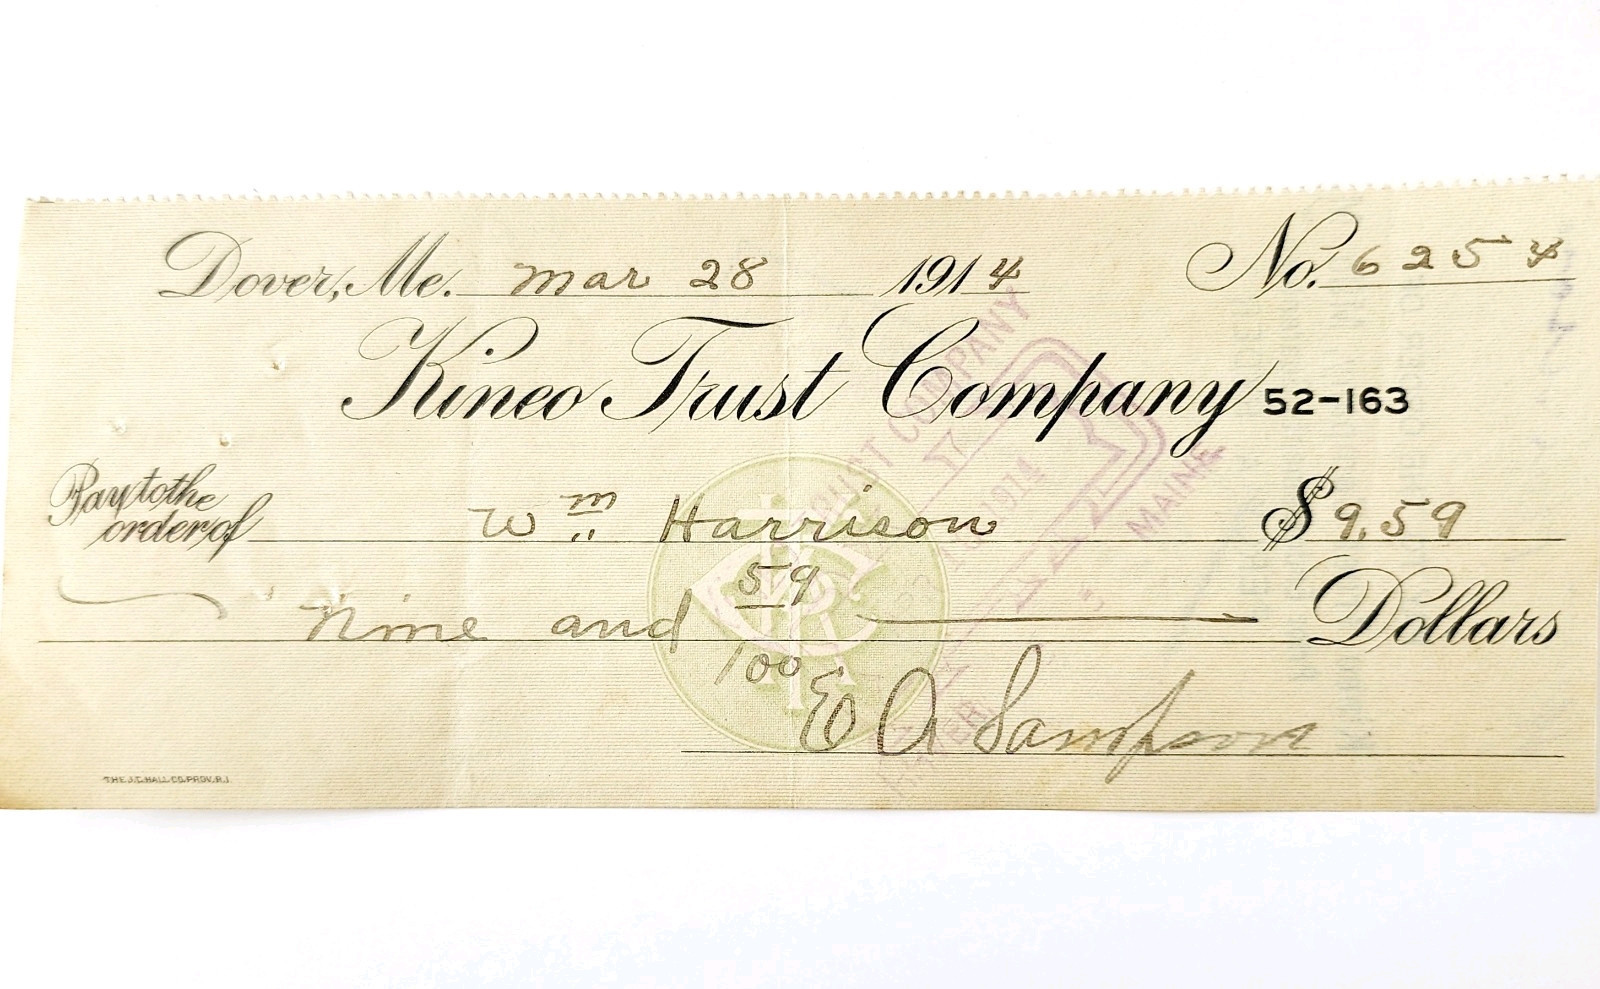 Dover, Me. Mar 28 1914 No. 6254
Kineo Trust Company 52-163
Pay to the order of Wm Harrison $9.59
Nine and 59/100 Dollars
E A Sampson
THE J.C. HALL CO. PROV. R.I.
TRUST COMPANY
1914
MAINE